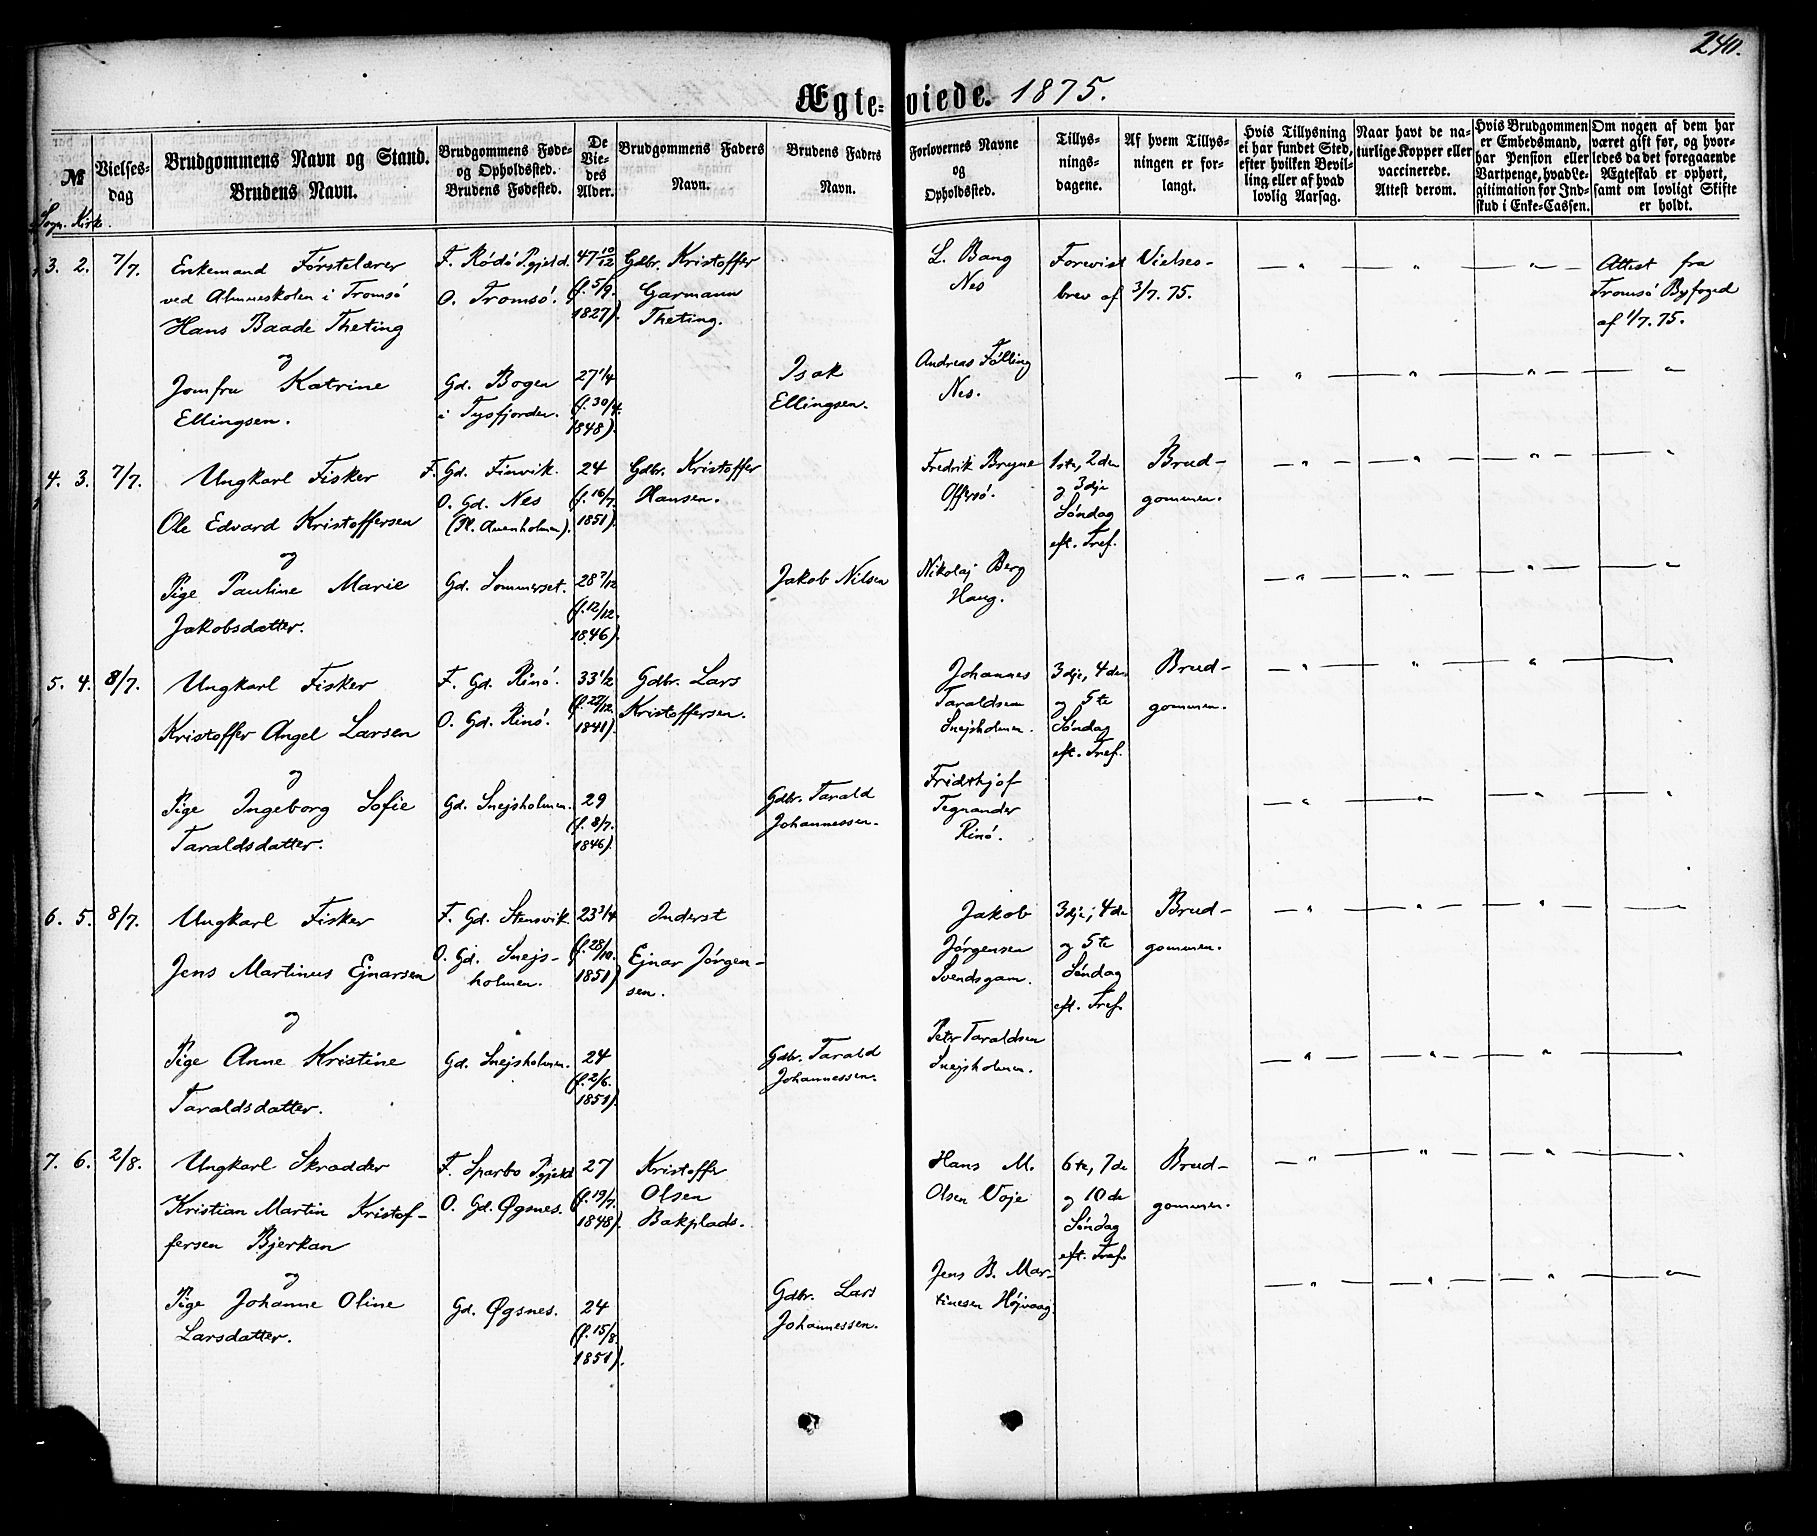 240.
Ægte-viede. 1875.
№
Sogn. Kirk.
Vielses-
dag
Brudgommens Navn og Stand.
Brudens Navn.
Brudgommens Føde-
og Opholdssted.
Brudens Fødested.
De
Vie-
des
Alder.
Brudgommens Faders
Navn.
Brudens Faders
Navn.
Forlovernes Navne
og
Opholdssted.
Tillys-
nings-
dagene.
Af hvem Tillys-
ningen er for-
langt.
Hvis Tillysning
ei har fundet Sted,
efter hvilken Bevil-
ling eller af hvad
lovlig Aarsag.
Naar havt de na-
turlige Kopper eller
vaccinerede.
Attest derom.
Hvis Brudgommen
er Embedsmand,
har Pension eller
Vartpenge, hvad Le-
gitimation for Ind-
skud i Enke-Cassen.
Om nogen af dem har
været gift før, og hvor-
ledes da det foregaaende
Ægteskab er ophørt,
samt om lovligt Skifte
er holdt.
3. 2. 7/7.
Enkemand Førstelærer
ved Almueskolen i Tromsø
Hans Baade Theting
og
Jomfru Katrine
Ellingsen.
F. Rødø Pgjeld.
O. Tromsø.
Gd. Bogen
i Tysfjorden.
47 10/12
(f. 5/9.
1827).
27 1/4
(f. 30/4.
1848).
Gdbr. Kristoffer
Garmann
Theting.
Isak
Ellingsen.
L. Bang
Nes
Andreas Følling
Nes.
Forevist Vielses-
brev af 3/7. 75.
Attest fra
Tromsø Byfoged
af 1/7. 75.
4. 3. 7/7.
Ungkarl Fisker
Ole Edvard Kristoffersen
og
Pige Pauline Marie
Jakobsdatter.
F. Gd. Finvik.
O. Gd. Nes
(Pl. Auenholmen).
Gd. Sommerset.
24
(f. 16/7.
1851).
28 7/12
(f. 12/12.
1846).
Gdbr. Kristoffer
Hansen.
Jakob Nilsen
Fredrik Bryne
Offersø.
Nikolaj Berg
Haug.
1ste, 2den
og 3dje
Søndag
eft. Tref.
Brud-
gommen.
5. 4. 8/7.
Ungkarl Fisker
Kristoffer Angel Larsen
og
Pige Ingeborg Sofie
Taraldsdatter.
F. Gd. Rinø.
O. Gd. Rinø.
Gd. Snejsholmen.
33 1/2
(f. 27/12.
1841).
29
(f. 8/7.
1846).
Gdbr. Lars
Kristoffersen.
Gdbr. Tarald
Johannessen.
Johannes
Taraldsen
Snejsholmen.
Fridthjof
Tegnander
Rinø.
3dje, 4de
og 5te
Søndag
eft. Tref.
Brud-
gommen.
6. 5. 8/7.
Ungkarl Fisker
Jens Martinus Ejnarsen
og
Pige Anne Kristine
Taraldsdatter.
F. Gd. Stensvik
O. Gd. Snejs-
holmen.
Gd. Snejsholmen.
23 3/4
(f. 28/10.
1851)
24
(f. 2/6.
1851).
Inderst
Ejnar Jørgen-
sen.
Gdbr. Tarald
Johannessen.
Jakob
Jørgensen
Svendsgam.
Peter Taraldsen
Snejsholmen.
3dje, 4de
og 5te
Søndag
eft. Tref.
Brud-
gommen.
7. 6. 2/8.
Ungkarl Skrædder
Kristian Martin Kristof-
fersen Bjerkan
og
Pige Johanne Oline
Larsdatter.
F. Sparbo Pgjeld
O. Gd. Øgsnes.
Gd. Øgsnes.
27
(f. 19/7.
1848).
24
(f. 15/8.
1851).
Kristoffer
Olsen
Bakplads.
Gdbr. Lars
Johannessen.
Hans M.
Olsen Voje
Jens B. Mar-
tinesen Højvaag
6te, 7de
og 10de
Søndag
eft. Tref.
Brud-
gommen.